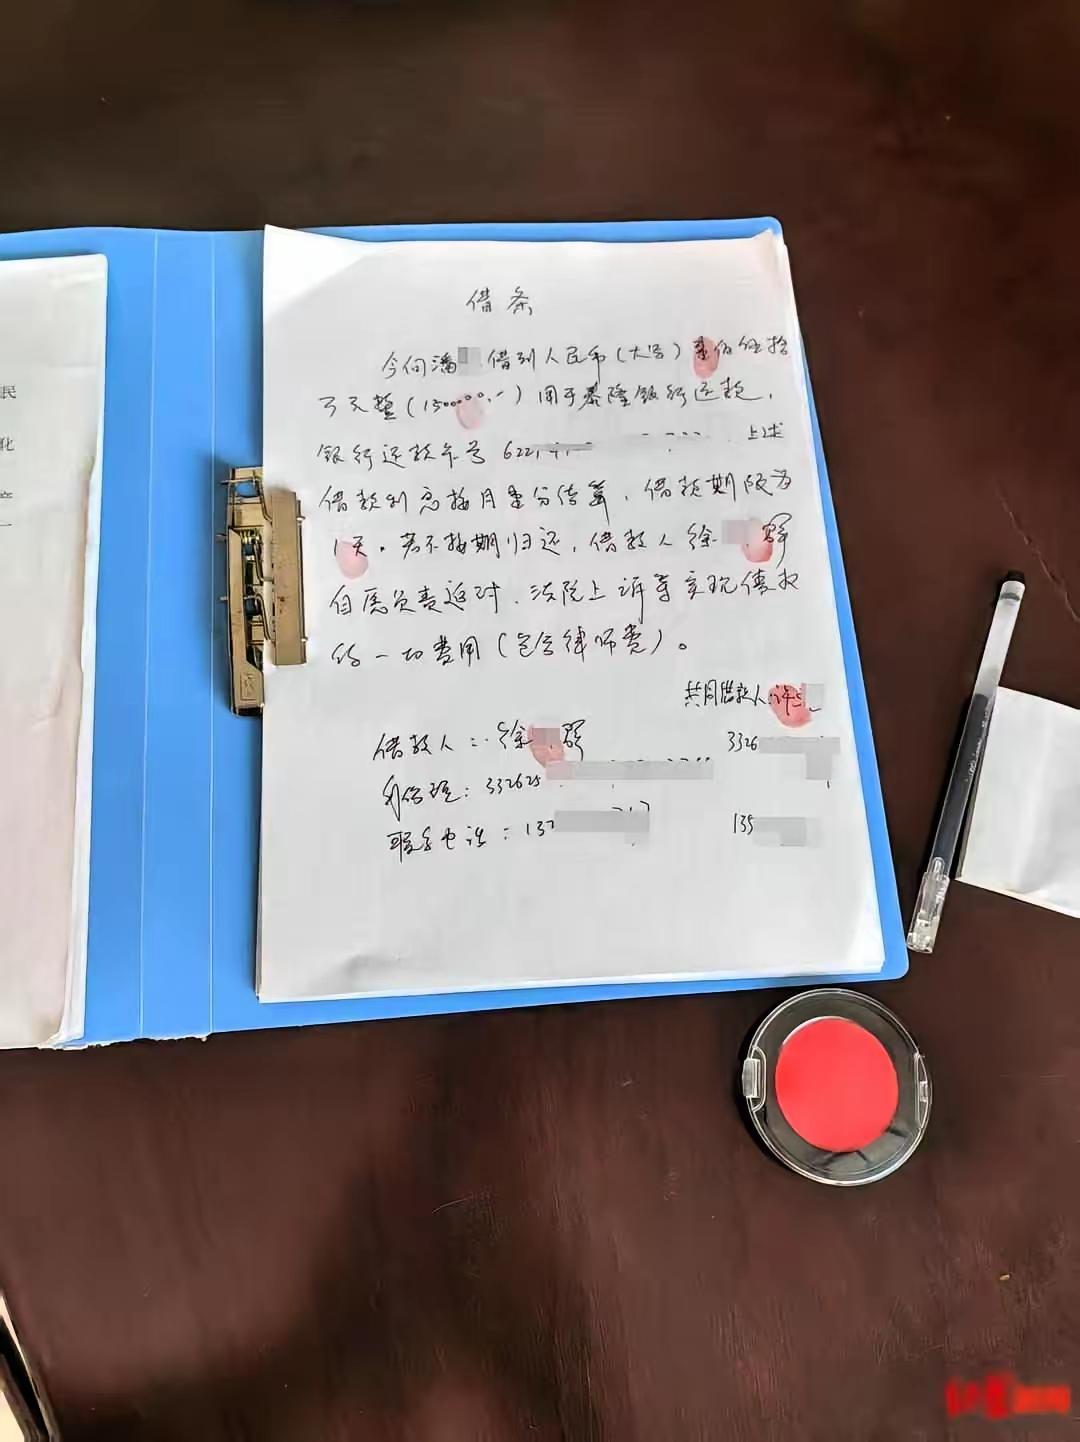 借条
今向潘 借到人民币(大写)壹佰伍拾
万元整(1500000.-)用于泰隆银行还款,
银行还款卡号622 上述
借款利息按月壹分结算,借款期限为
1天。若不按期归还,借款人徐 群
自愿负责追讨、法院上诉等实现债权
的一切费用(包含律师费)。
共同借款人:许
借款人:徐 群
3326
身份证:332625
联系电话:137
135
民
化
产
一